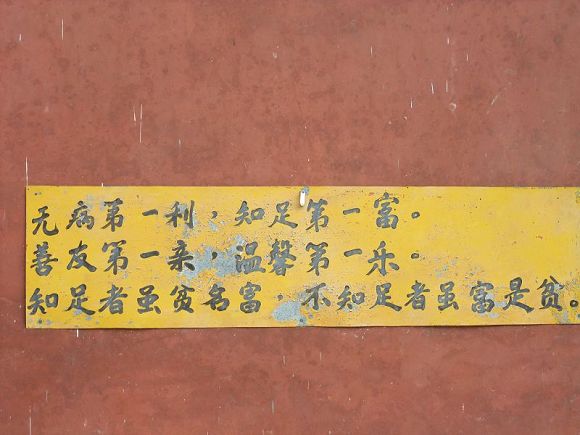 无病第一利，知足第一富。
善友第一亲，温馨第一乐。
知足者虽贫名富，不知足者虽富是贫。